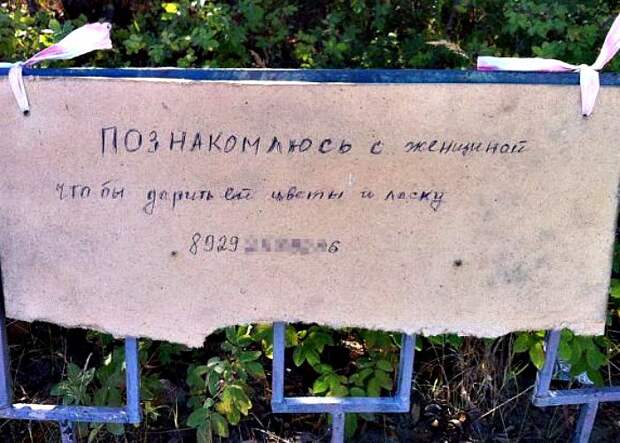 ПОЗНАКОМЛЮСЬ с женщиной
что бы дарить ей цветы и ласку
8929 6